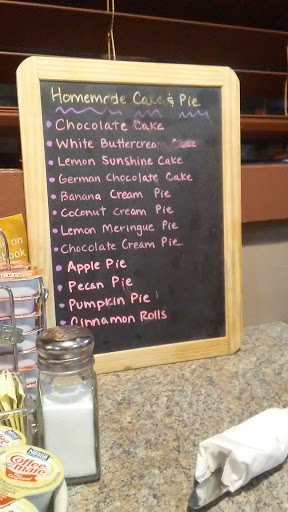 Homemade Cake & Pie
Chocolate Cake
White Buttercream Cake
Lemon Sunshine Cake
German Chocolate Cake
Banana Cream Pie
Coconut Cream Pie
Lemon Meringue Pie
Chocolate Cream Pie
Apple Pie
Pecan Pie
Pumpkin Pie
Cinnamon Rolls
on
book
Nestle
Coffee
mate